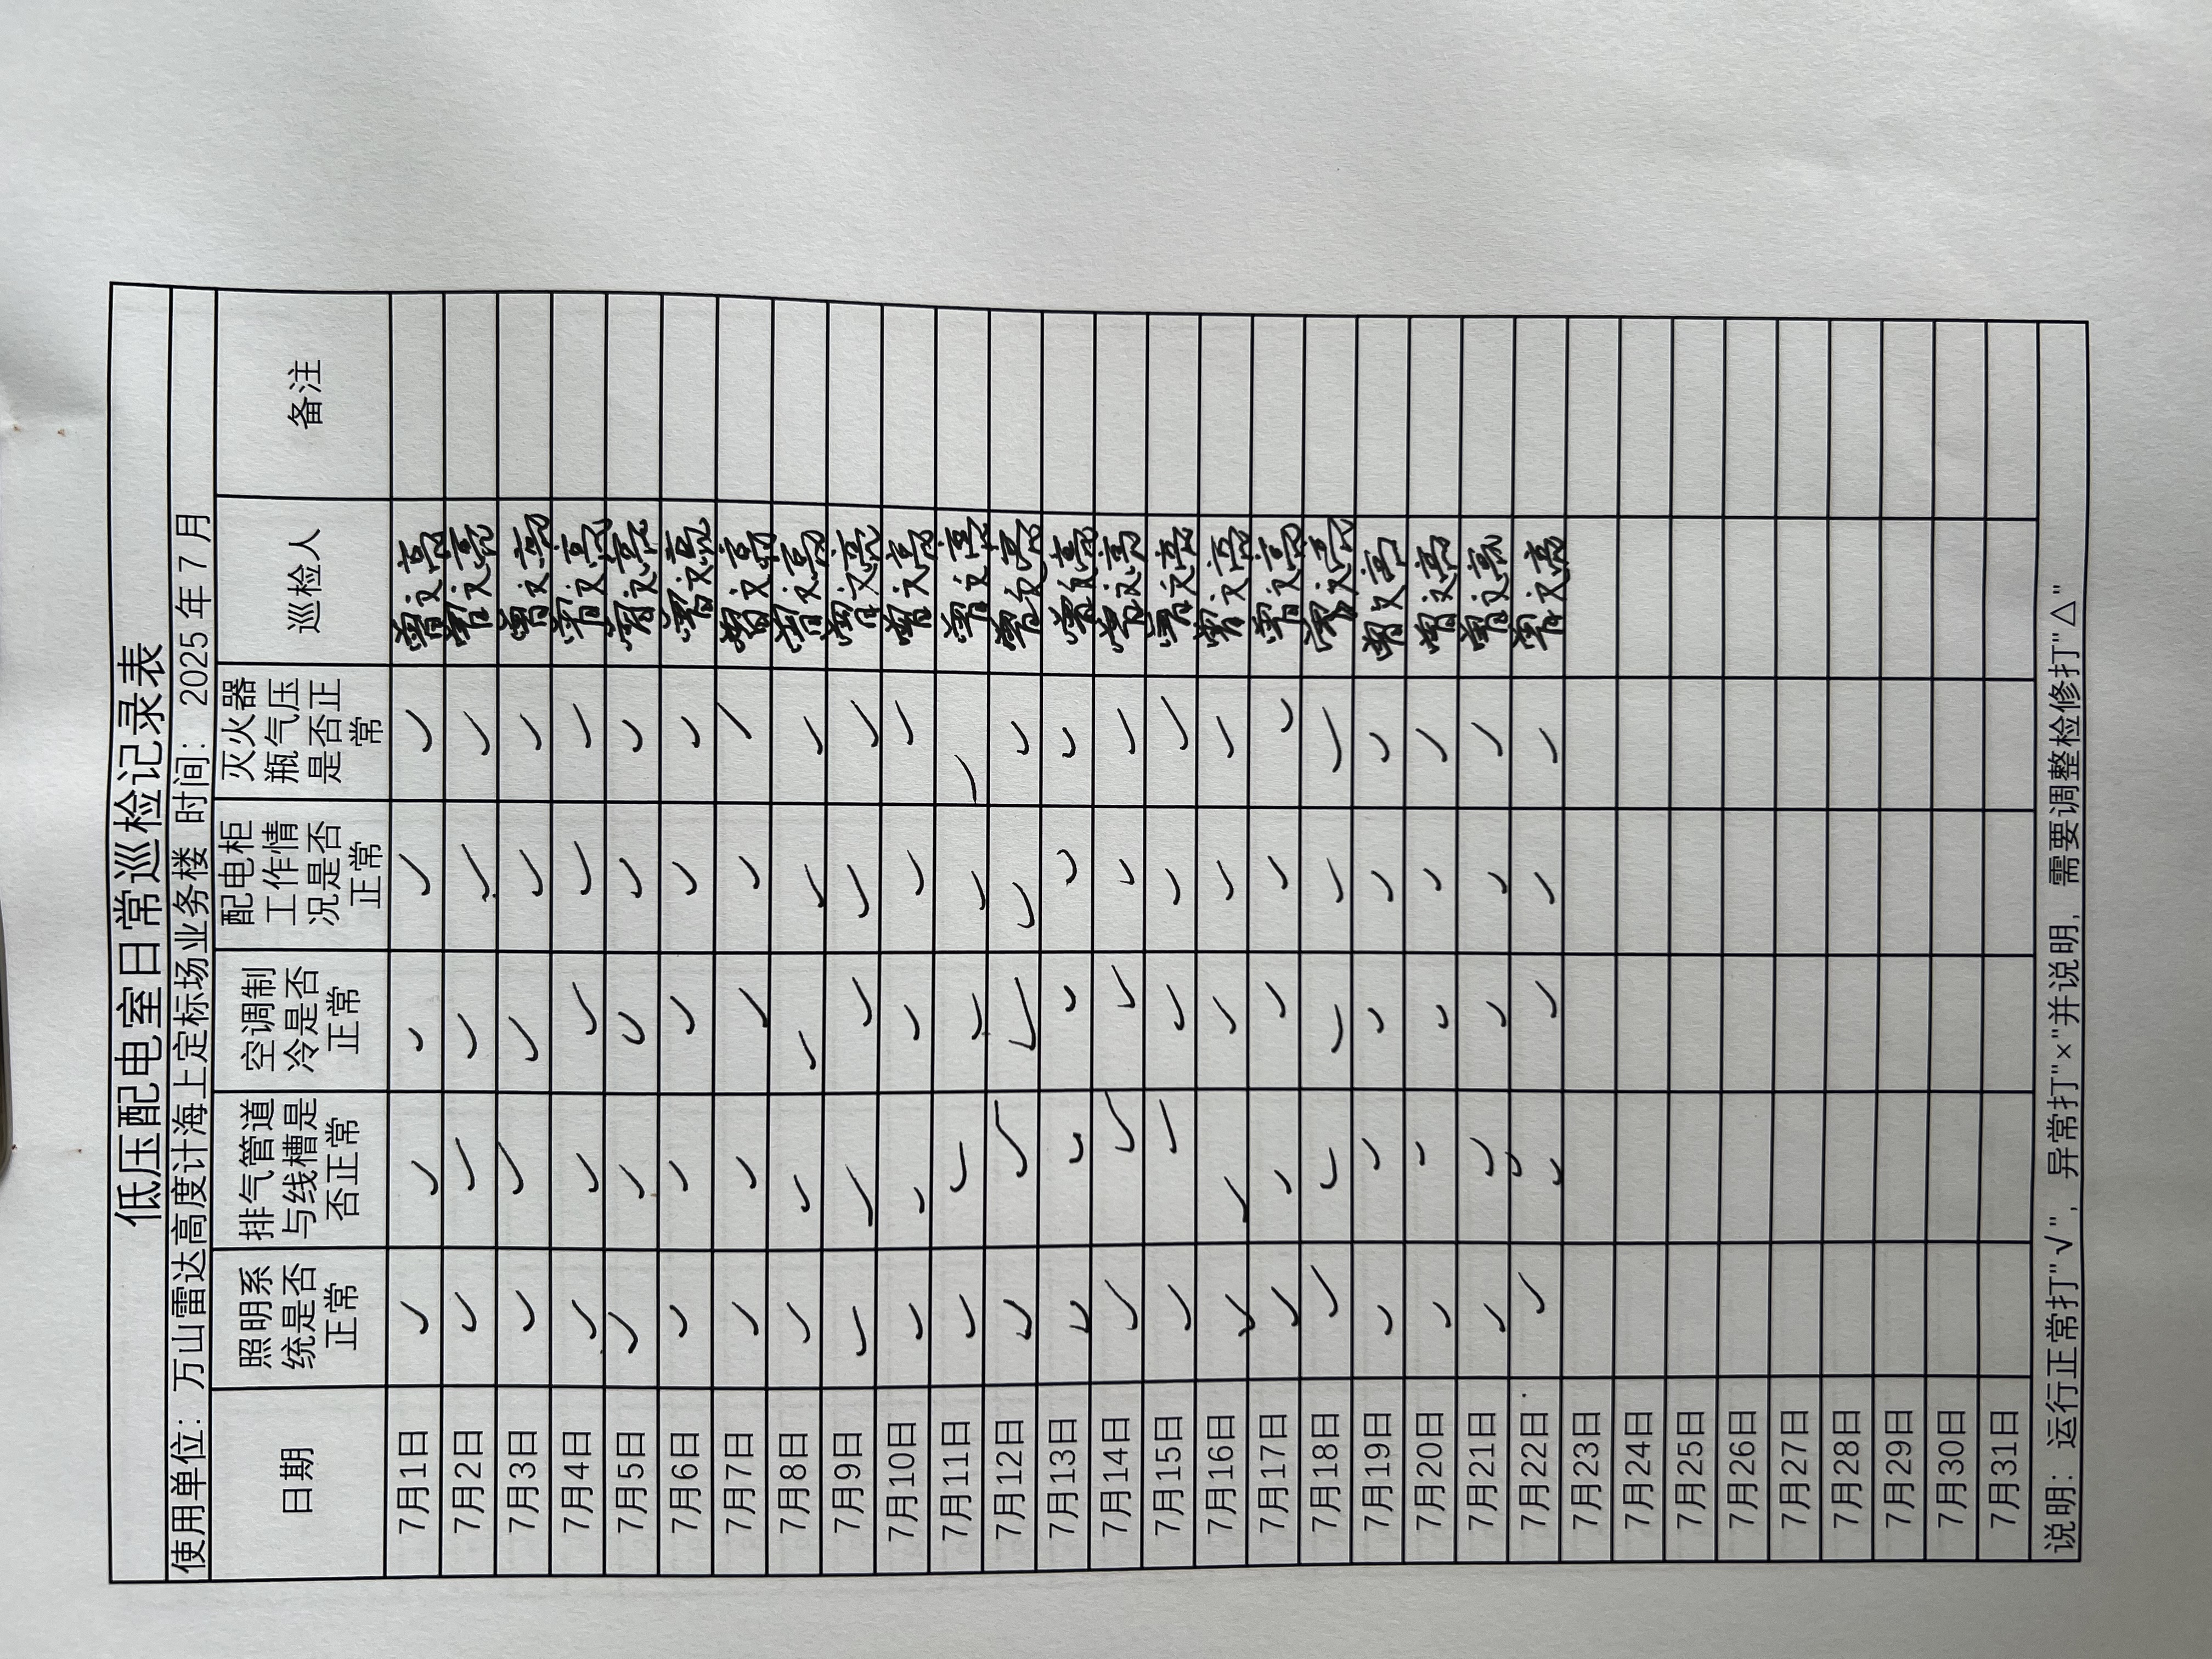 低压配电室日常巡检记录表
使用单位：万山雷达高度计海上定标场业务楼 时间：2025 年 7 月
日期 照明系统是否正常 排气管道与线槽是否正常 空调制冷是否正常 配电柜工作情况是否正常 灭火器瓶气压是否正常 巡检人 备注
7月1日 ✓ ✓ ✓ ✓ ✓ 曾文亮
7月2日 ✓ ✓ ✓ ✓ ✓ 曾文亮
7月3日 ✓ ✓ ✓ ✓ ✓ 曾文亮
7月4日 ✓ ✓ ✓ ✓ ✓ 曾文亮
7月5日 ✓ ✓ ✓ ✓ ✓ 曾文亮
7月6日 ✓ ✓ ✓ ✓ ✓ 曾文亮
7月7日 ✓ ✓ ✓ ✓ ✓ 曾文亮
7月8日 ✓ ✓ ✓ ✓ ✓ 曾文亮
7月9日 ✓ ✓ ✓ ✓ ✓ 曾文亮
7月10日 ✓ ✓ ✓ ✓ ✓ 曾文亮
7月11日 ✓ ✓ ✓ ✓ ✓ 曾文亮
7月12日 ✓ ✓ ✓ ✓ ✓ 曾文亮
7月13日 ✓ ✓ ✓ ✓ ✓ 曾文亮
7月14日 ✓ ✓ ✓ ✓ ✓ 曾文亮
7月15日 ✓ ✓ ✓ ✓ ✓ 曾文亮
7月16日 ✓ ✓ ✓ ✓ ✓ 曾文亮
7月17日 ✓ ✓ ✓ ✓ ✓ 曾文亮
7月18日 ✓ ✓ ✓ ✓ ✓ 曾文亮
7月19日 ✓ ✓ ✓ ✓ ✓ 曾文亮
7月20日 ✓ ✓ ✓ ✓ ✓ 曾文亮
7月21日 ✓ ✓ ✓ ✓ ✓ 曾文亮
7月22日 ✓ ✓ ✓ ✓ ✓ 曾文亮
7月23日
7月24日
7月25日
7月26日
7月27日
7月28日
7月29日
7月30日
7月31日
说明：运行正常打"√"，异常打"×"并说明，需要调整检修打"△"